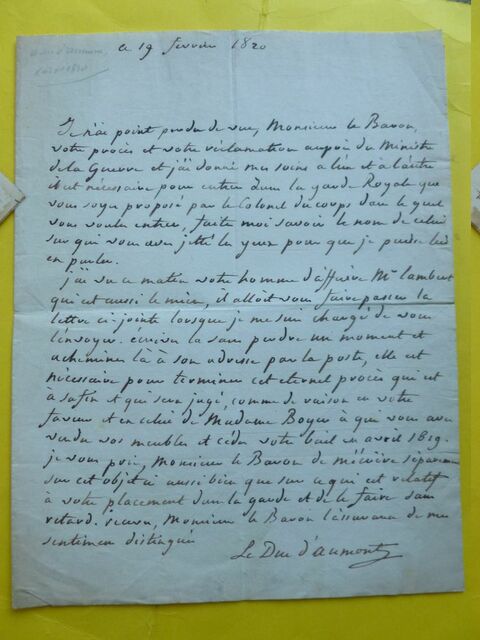 ce 19 fevrier 1820
Je n'ai point perdu de vue, Monsieur le Baron,
votre procès et votre réclamation auprès du Ministre
de la Guerre et j'ai donné mes soins à l'un et à l'autre
il est nécessaire pour entrer dans la garde Royale que
vous soyez proposé par le Colonel du corps dans le quel
vous voulez entrer, faite moi savoir le nom de celui
sur qui vous avez jetté les yeux pour que je puisse lui
en parler.
j'ai vu ce matin votre homme d'affaire Mr lambert
qui est aussi le mien, il alloit vous faire passer la
lettre ci jointe lorsque je me suis chargé de vous
l'envoyer. ecrivez la sans perdre un moment et
acheminez là à son adresse par la poste, elle est
nécessaire pour terminer cet eternel procès qui est
à sa fin et qui sera jugé, comme de raison en votre
faveur et en celui de Madame Boyer à qui vous avez
vendu vos meubles et cédé votre bail en avril 1819.
je vous prie, Monsieur le Baron de m'écrire séparement
sur cet objet ci aussi bien que sur ce qui est relatif
à votre placement dans la garde et de le faire sans
retard. recevez, Monsieur le Baron l'assurance de mes
sentimens distingués
Le Duc d'aumont